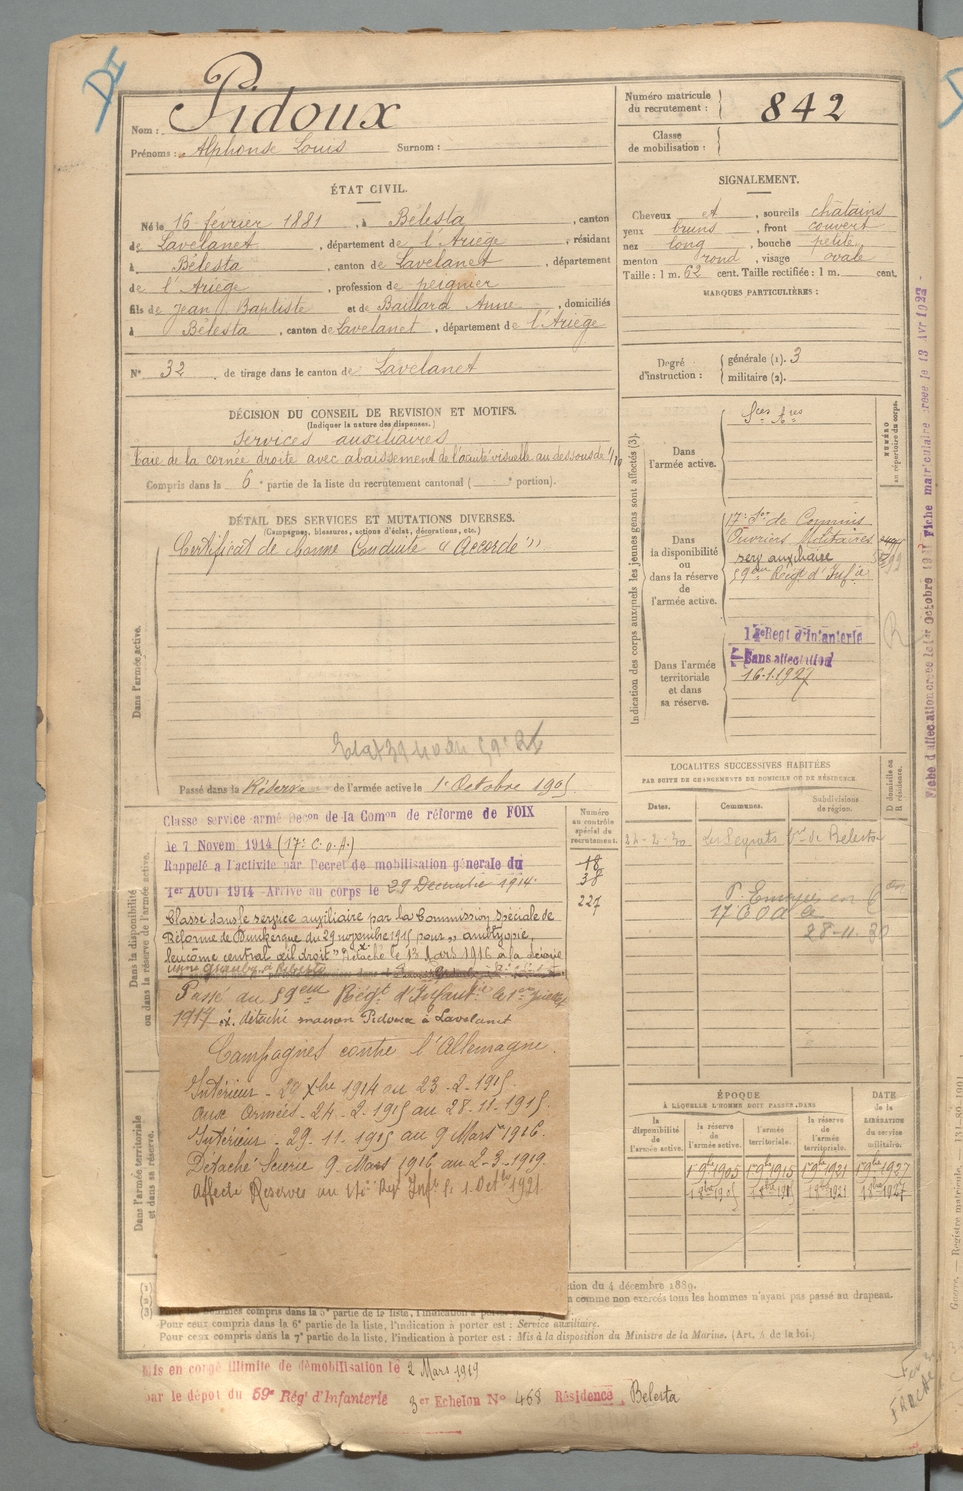 Pidoux
Nom :
Prénoms : Alphonse Louis Surnom :
Numéro matricule du recrutement : 842
Classe de mobilisation :
ÉTAT CIVIL.
Né le 16 février 1881, à Bélesta, canton
de Lavelanet, département de l'Ariège, résidant
à Bélesta, canton de Lavelanet, département
de l'Ariège, profession de peignier
fils de Jean Baptiste et de Baillard Anne, domiciliés
à Bélesta, canton de Lavelanet, département de l'Ariège
N° 32 de tirage dans le canton de Lavelanet
SIGNALEMENT.
Cheveux et, sourcils châtains
yeux bruns, front couvert
nez long, bouche petite
menton rond, visage ovale
Taille : 1 m. 62 cent. Taille rectifiée : 1 m. cent.
MARQUES PARTICULIÈRES :
Degré d'instruction : générale (1). 3
militaire (2).
DÉCISION DU CONSEIL DE REVISION ET MOTIFS.
(Indiquer la nature des dispenses.)
Services auxiliaires
Taie de la cornée droite avec abaissement de l'acuité visuelle au dessous de 1/10
Compris dans la 6e partie de la liste du recrutement cantonal ( e portion).
DÉTAIL DES SERVICES ET MUTATIONS DIVERSES.
(Campagnes, blessures, actions d'éclat, décorations, etc.)
Dans l'armée active.
Certificat de Bonne Conduite "Accordé"
Passé dans la Réserve de l'armée active le 1er Octobre 1905
Indication des corps auxquels les jeunes gens sont affectés (3).
NUMÉRO au répertoire du corps.
Dans l'armée active.
Sces Ares
Dans la disponibilité ou dans la réserve de l'armée active.
17e Son de Commis
Ouvriers Militaires
serv auxiliaire
59eme Régt d'Infie
Dans l'armée territoriale et dans sa réserve.
14e Regt d'Infanterie
Sans affectation
16.1.1927
LOCALITÉS SUCCESSIVES HABITÉES
PAR SUITE DE CHANGEMENTS DE DOMICILE OU DE RÉSIDENCE.
Dates. Communes. Subdivisions de région. D domicile ou R résidence.
28-11-30
Numéro au contrôle spécial du recrutement.
18
38
227
Dans la disponibilité ou dans la réserve de l'armée active.
Classé service armé Décon de la Comon de réforme de FOIX
le 7 Novem 1914 (17e C.O.A.)
Rappelé à l'activité par Décret de mobilisation générale du
1er AOUT 1914 Arrivé au corps le 29 Décembre 1914.
Classé dans le service auxiliaire par la Commission Spéciale de
Réforme de Dunkerque du 29 novembre 1915 pour "amblyopie,
leucome central œil droit" Détaché le 13 Mars 1916 à la Scierie
Passé au 59eme Régt d'Infantie le 1er Juillet
1917 détaché maison Pidoux à Lavelanet
Campagnes contre l'Allemagne.
Intérieur - 29 Xbre 1914 au 23-2-1915.
aux Armées - 24-2-1915 au 28-11-1915.
Intérieur - 29-11-1915 au 9 Mars 1916.
Détaché Scierie 9 Mars 1916 au 2-3-1919.
Affecté Réserves au 14e Regt Infie le 1 Octbre 1921
Dans l'armée territoriale et dans sa réserve.
ÉPOQUE
À LAQUELLE L'HOMME DOIT PASSER DANS
la disponibilité de l'armée active. la réserve de l'armée active. l'armée territoriale. la réserve de l'armée territoriale. DATE de la LIBÉRATION du service militaire.
1er 9bre 1905 1er 9bre 1915 1er 9bre 1921 1er 9bre 1927
(1)
(2)
(3)
tion du 4 décembre 1889.
comme non exercés tous les hommes n'ayant pas passé au drapeau.
Pour ceux compris dans la 6e partie de la liste, l'indication à porter est : Service auxiliaire.
Pour ceux compris dans la 7e partie de la liste, l'indication à porter est : Mis à la disposition du Ministre de la Marine. (Art. 4 de la loi.)
Mis en congé illimité de démobilisation le 2 Mars 1919
par le dépôt du 59e Rég' d'Infanterie 3er Echelon N° 468 Résidence Bélesta